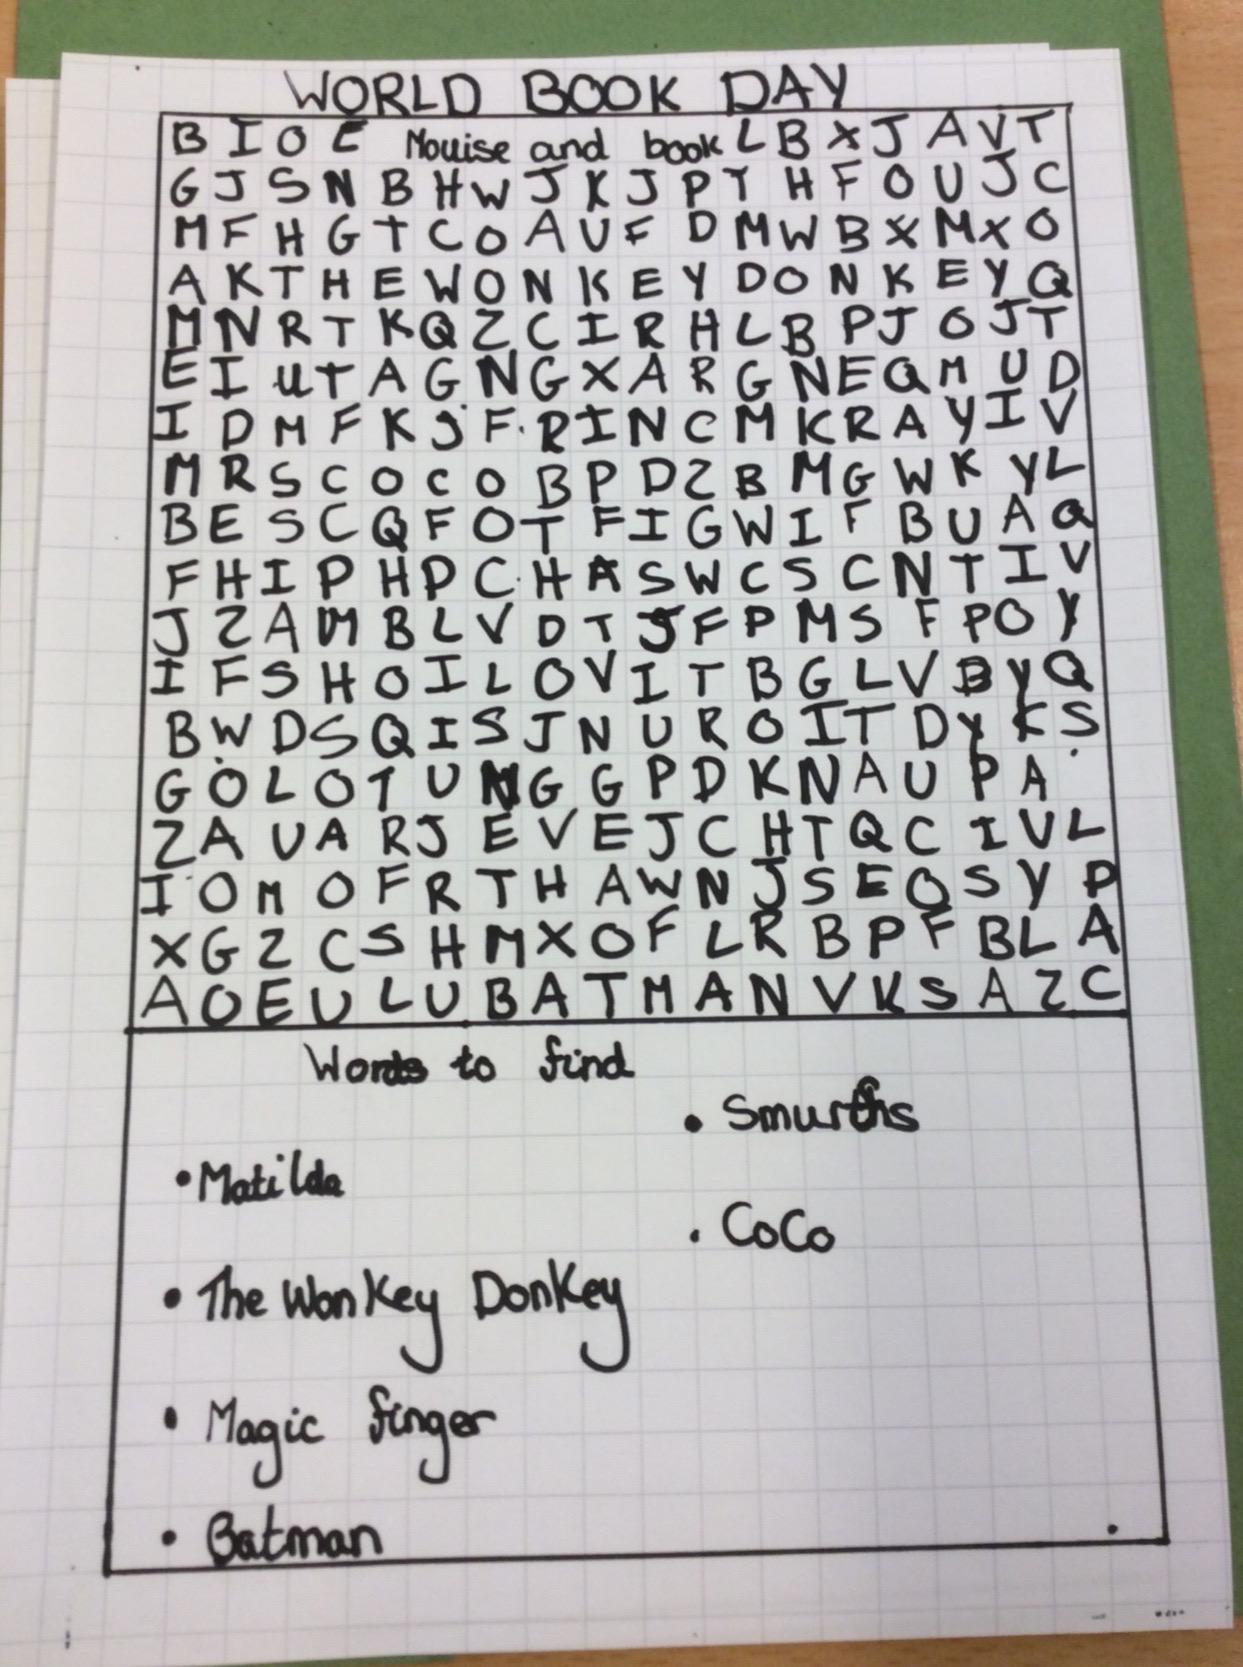 WORLD BOOK DAY
B I O E Mouise and book L B X J A V T
G J S N B H W J K J P Y H F O U J C
M F H G T C O A U F D M W B X M X O
A K T H E W O N K E Y D O N K E Y Q
M N R T K Q Z C I R H L B P J O J T
E I U T A G N G X A R G N E Q M U D
I D M F K J F R I N C M K R A Y I V
M R S C O C O B P D Z B M G W K Y L
B E S C Q F O T F I G W I F B U A Q
F H I P H D C H A S W C S C N T I V
J Z A M B L V D T J F P M S F P O Y
I F S H O I L O V I T B G L V B Y Q
B W D S Q I S J N U R O I T D Y K S
G O L O T U N G G P D K N A U P A
Z A U A R J E V E J C H T Q C I V L
I O M O F R T H A W N J S E O S Y P
X G Z C S H M X O F L R B P F B L A
A O E U L U B A T M A N V K S A Z C
Words to find
• Smurfhs
• Matilda
• CoCo
• The Wonkey Donkey
• Magic finger
• Batman